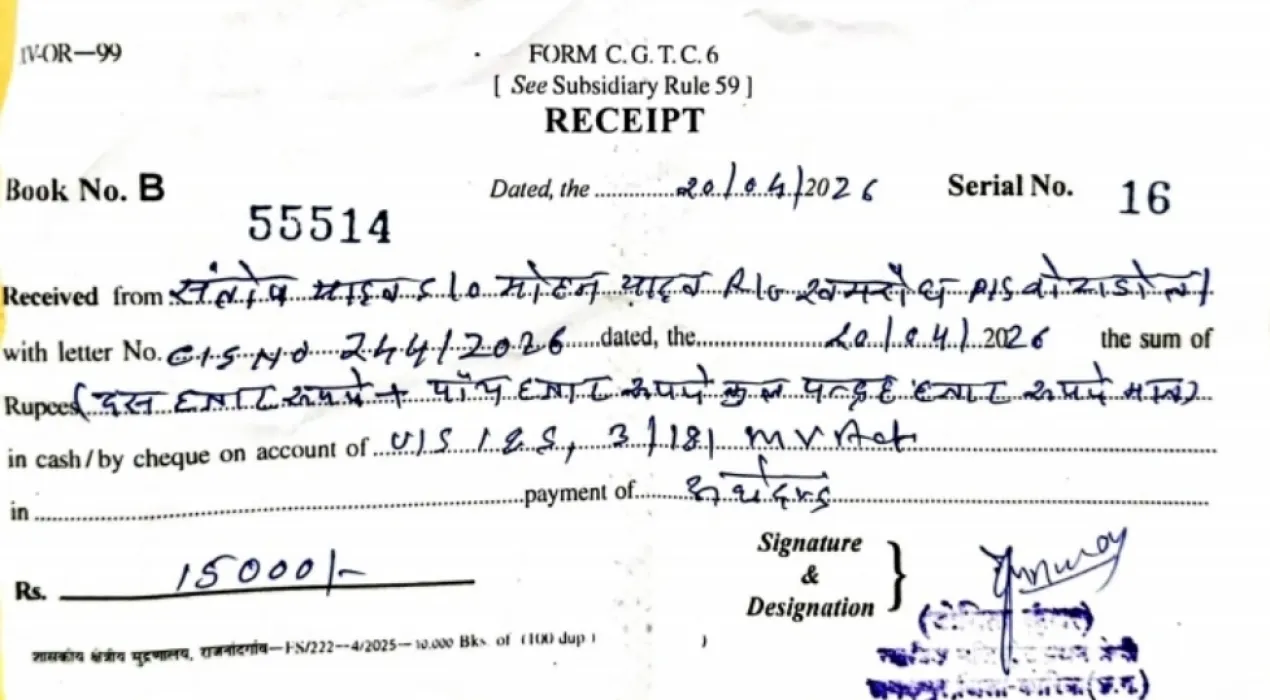 IV-OR—99
FORM C. G. T. C. 6
[ See Subsidiary Rule 59 ]
RECEIPT
Book No. B 55514 Dated, the 20/04/2026 Serial No. 16
Received from संतोष यादव S/o मोहन यादव R/o P/S
with letter No. CIS NO 244/2026 dated, the 20/04/2026 the sum of
Rupees (दस हजार रूपये + पाँच हजार रूपये कुल पन्द्रह हजार रूपये मात्र)
in cash/by cheque on account of U/S 185, 3/181 MV Act
in payment of अर्थदण्ड
Rs. 15000/-
Signature
&
Designation
शासकीय क्षेत्रीय मुद्रणालय, राजनांदगांव—FS/222—4/2025—10,000 Bks. of (100 dup)